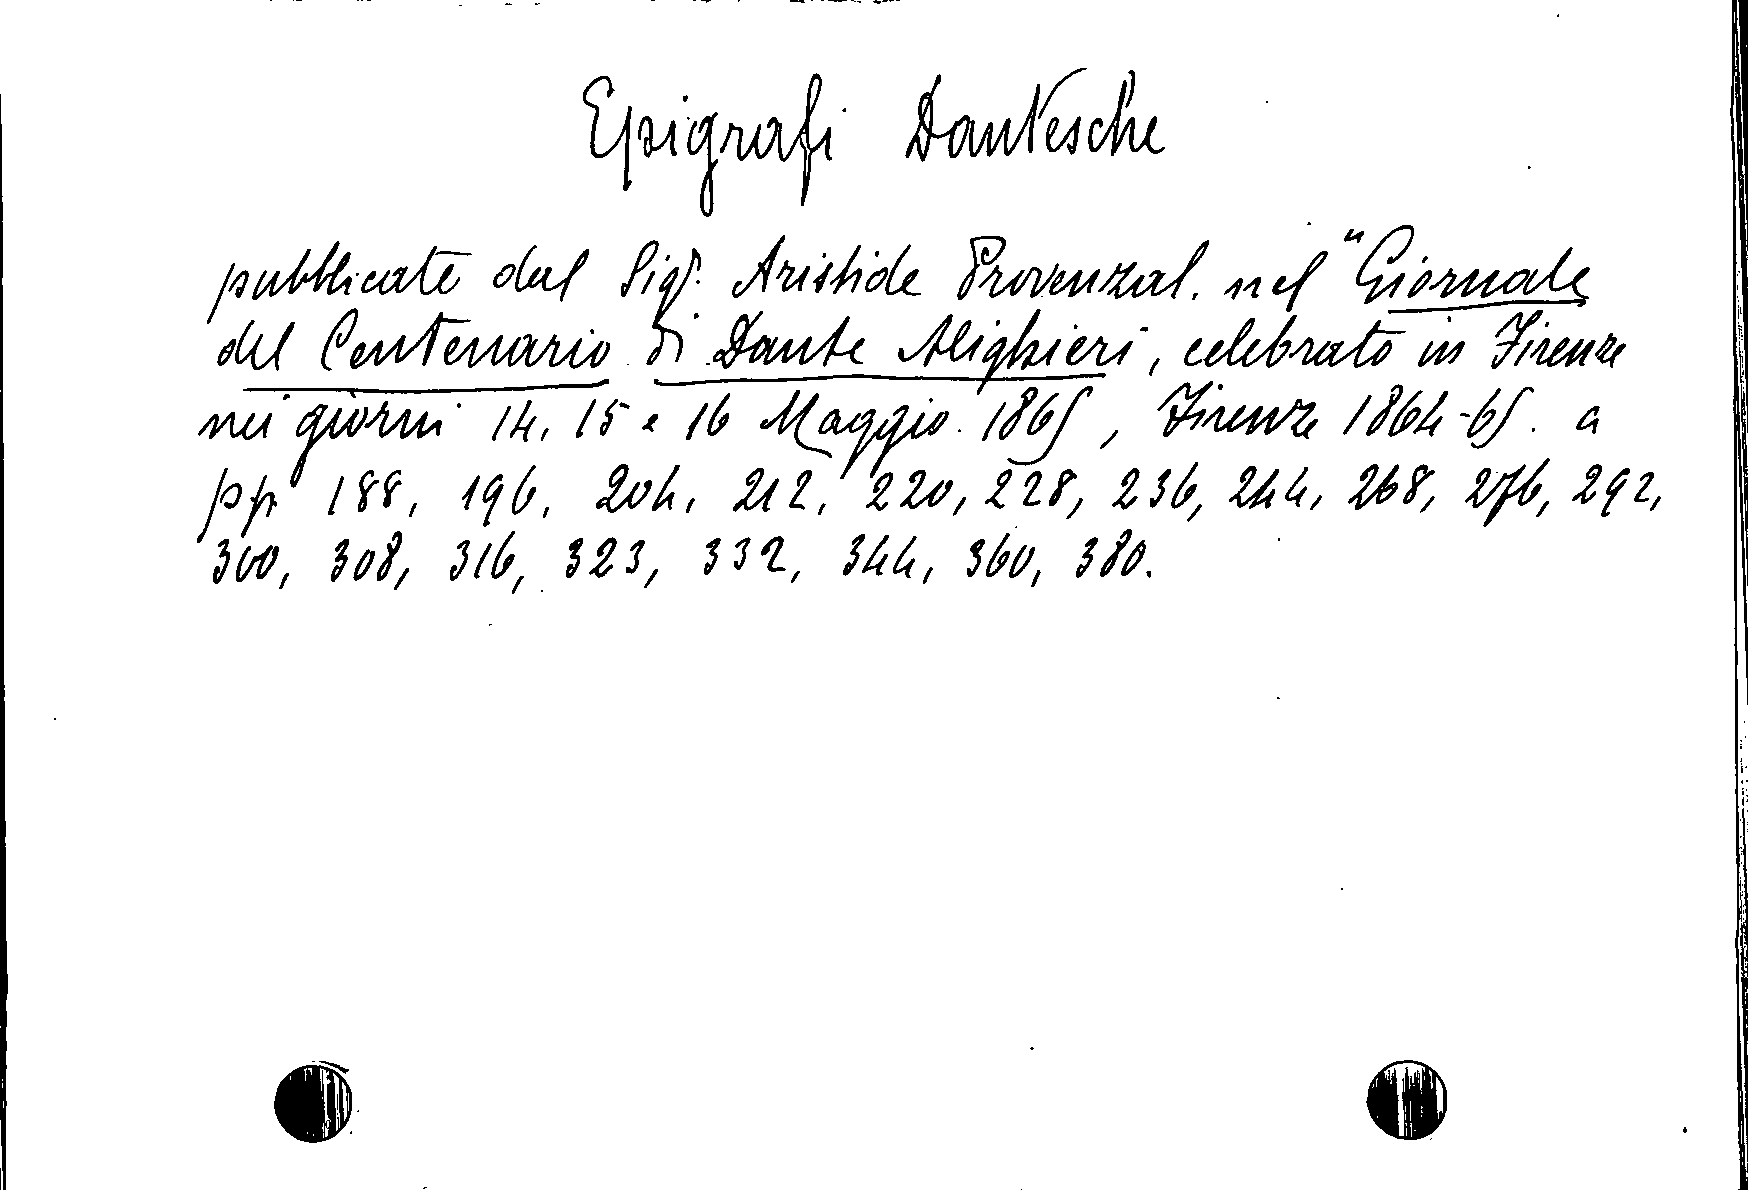 Epigrafi Dantesche
pubblicate dal Sigr. Aristide Provenzal. nel "Giornale
del Centenario di Dante Alighieri, celebrato in Firenze
nei giorni 14, 15 e 16 Maggio 1865, Firenze 1864-65. a
pp. 188, 196, 204, 212, 220, 228, 236, 244, 268, 276, 292,
300, 308, 316, 323, 332, 344, 360, 380.